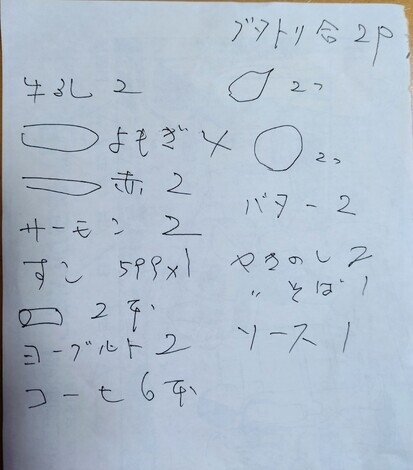 ブタトリ合2P
牛るし 2
2つ
よもぎ 4
2つ
赤 2
バター 2
サーモン 2
すし 599×1
やきのし 2
〃 そば 1
2本
ソース 1
ヨーグルト 2
コーヒ 6本